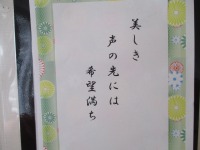 美しき
声の先には
希望満ち